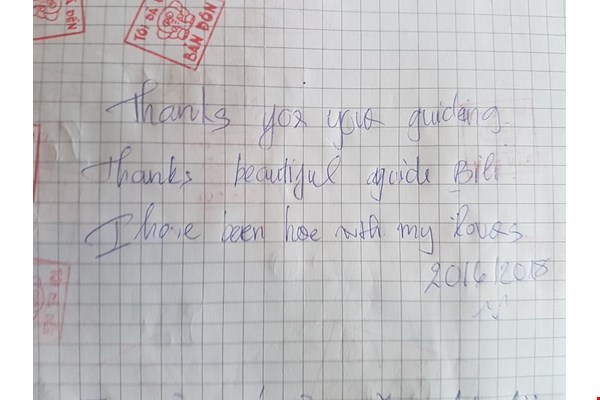 TÔI ĐÃ
BẢN ĐÔN
ĐÔN
Thanks for your guiding.
Thanks beautiful aguide Bil
I have been hoe with my loves
2016/2018